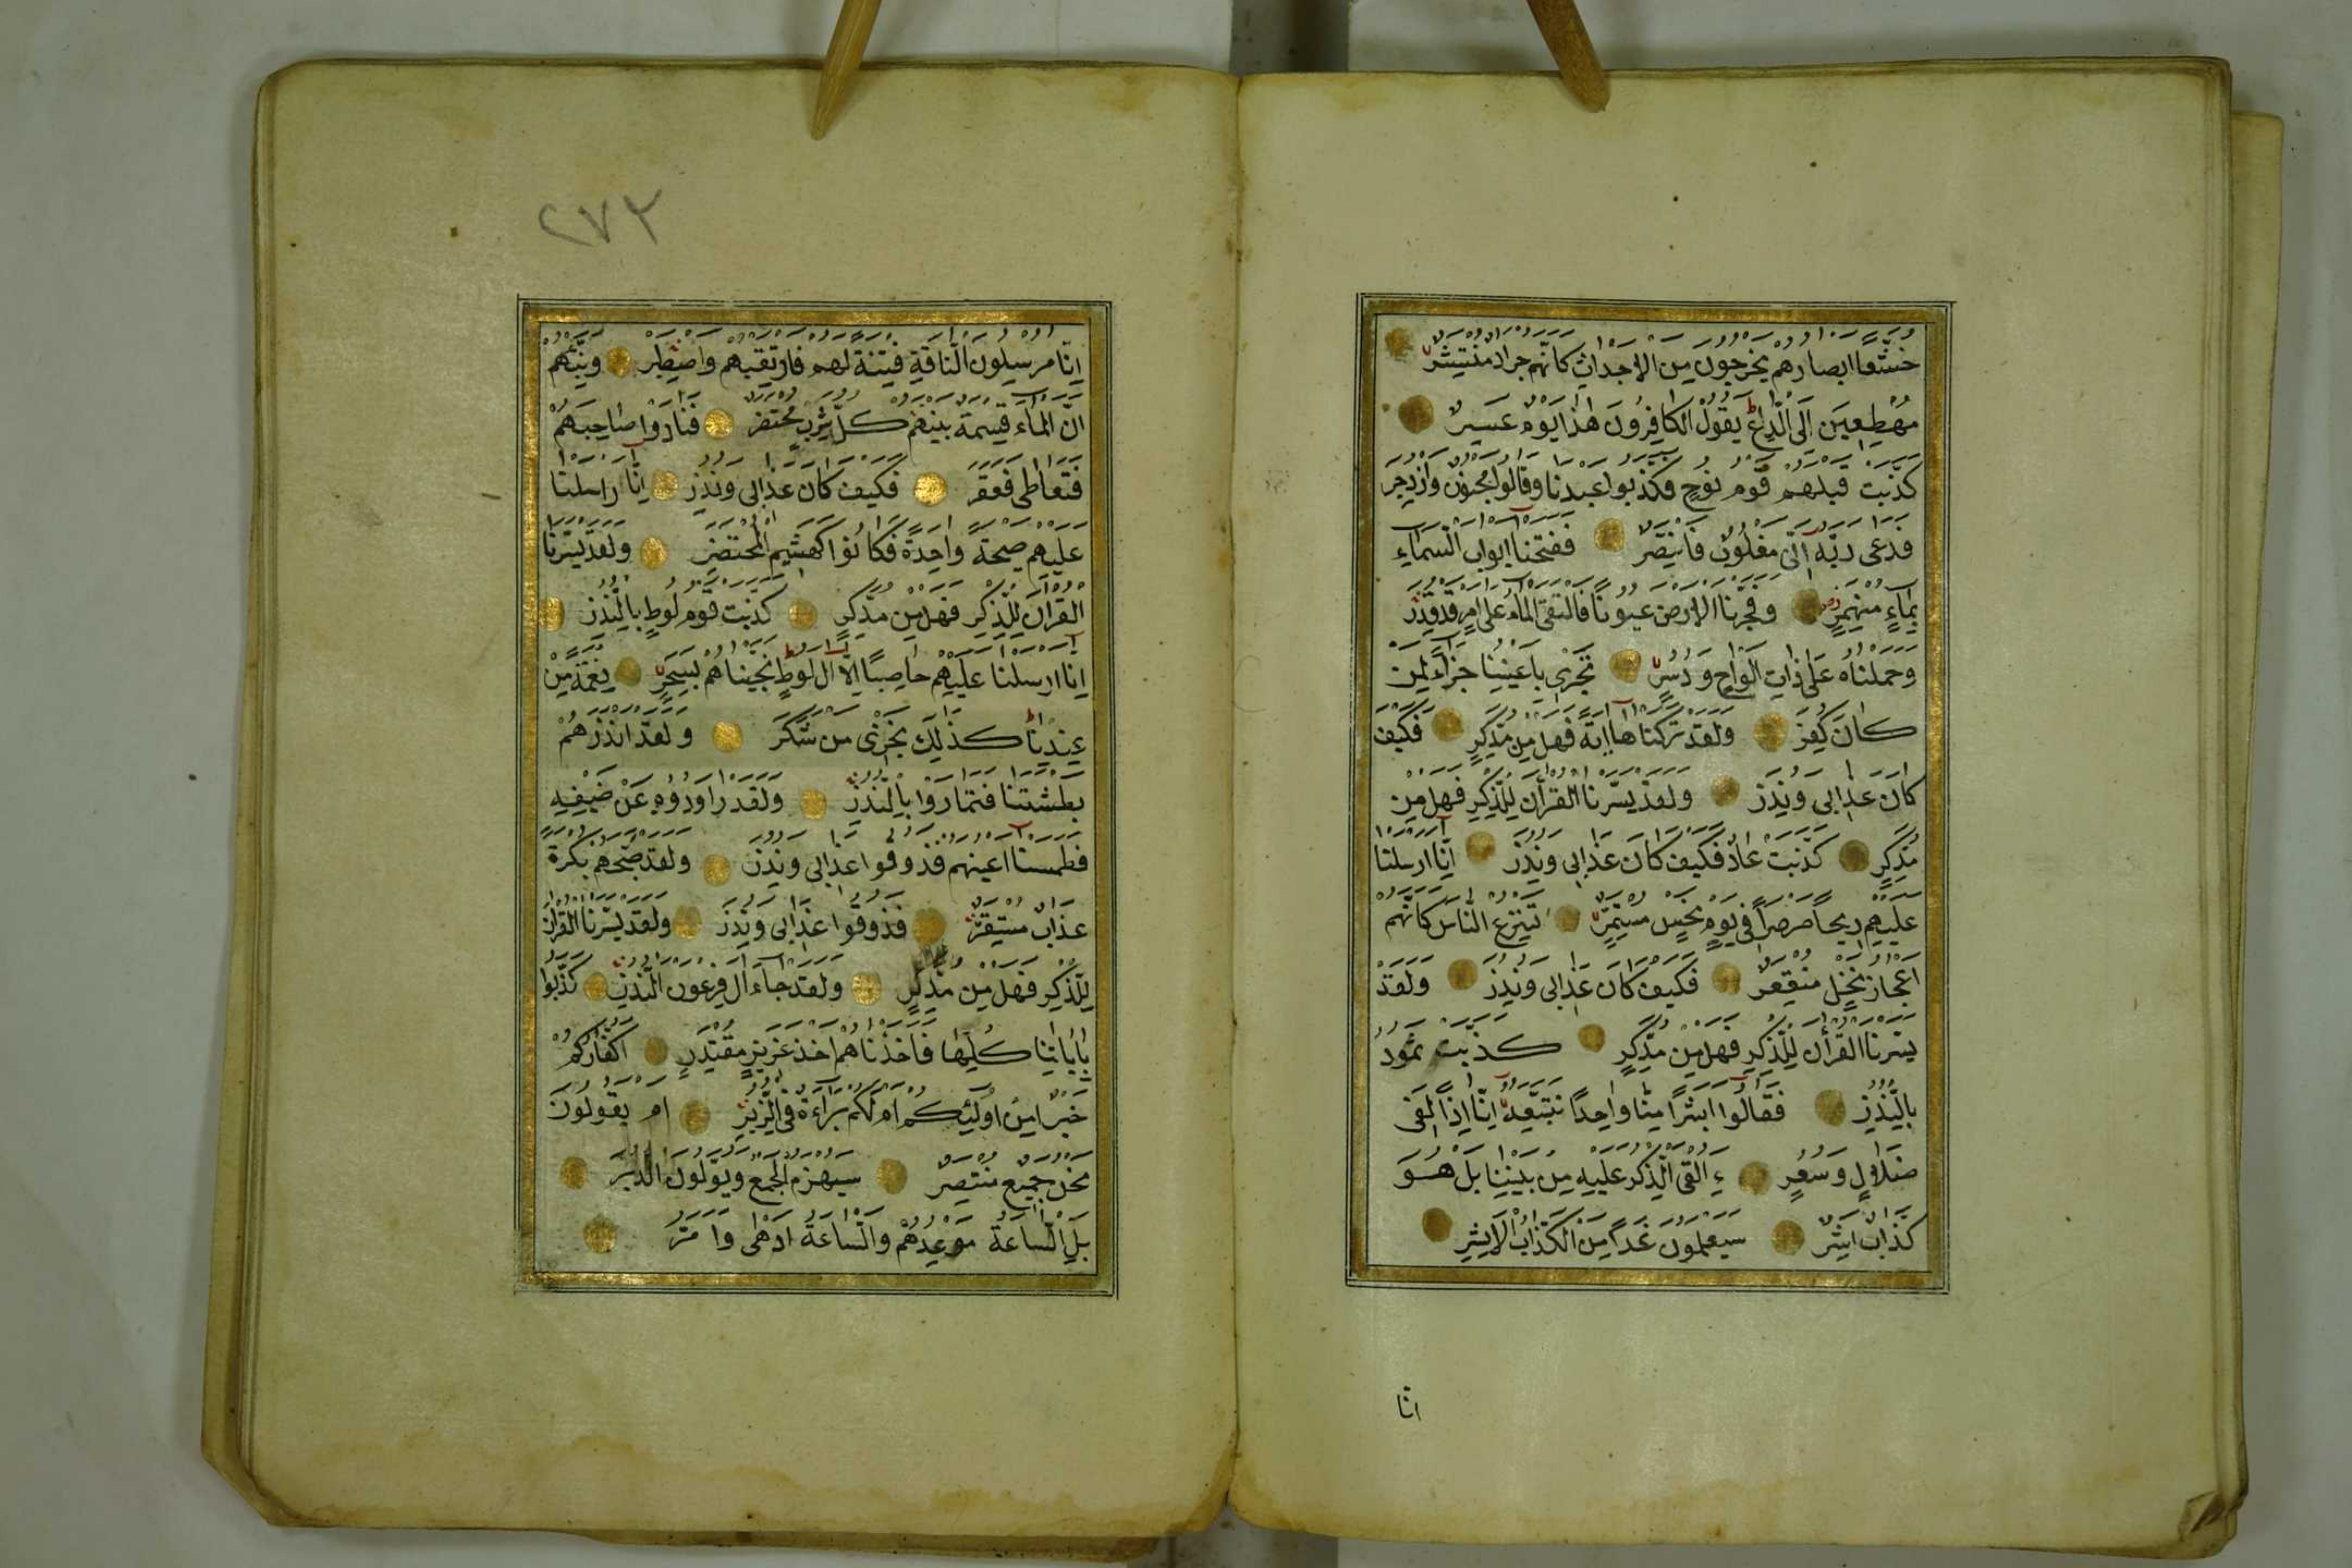 خشعا ابصارهم يخرجون من الاجداث كانهم جراد منتشر
مهطعين الى الداع يقول الكافرون هذا يوم عسر
كذبت قبلهم قوم نوح فكذبوا عبدنا وقالوا مجنون وازدجر
فدعى ربه انى مغلوب فانتصر ففتحنا ابواب السماء
بماء منهمر وفجرنا الارض عيونا فالتقى الماء على امر قد قدر
وحملناه على ذات الواح ودسر تجرى باعيننا جزاء لمن
كان كفر ولقد تركناها اية فهل من مدكر فكيف
كان عذابى ونذر ولقد يسرنا القرآن للذكر فهل من
مدكر كذبت عاد فكيف كان عذابى ونذر انا ارسلنا
عليهم ريحا صرصرا فى يوم نحس مستمر تنزع الناس كانهم
اعجاز نخل منقعر فكيف كان عذابى ونذر ولقد
يسرنا القرآن للذكر فهل من مدكر كذبت ثمود
بالنذر فقالوا ابشرا منا واحدا نتبعه انا اذا لفى
ضلال وسعر ءالقى الذكر عليه من بيننا بل هو
كذاب اشر سيعلمون غدا من الكذاب الاشر
انا
٢٧٣
انا مرسلون الناقة فتنة لهم فارتقبهم واصطبر ونبئهم
ان الماء قسمة بينهم كل شرب محتضر فنادوا صاحبهم
فتعاطى فعقر فكيف كان عذابى ونذر انا ارسلنا
عليهم صيحة واحدة فكانوا كهشيم المحتضر ولقد يسرنا
القرآن للذكر فهل من مدكر كذبت قوم لوط بالنذر
انا ارسلنا عليهم حاصبا الا ال لوط نجيناهم بسحر نعمة من
عندنا كذلك نجزى من شكر ولقد انذرهم
بطشتنا فتماروا بالنذر ولقد راودوه عن ضيفه
فطمسنا اعينهم فذوقوا عذابى ونذر ولقد صبحهم بكرة
عذاب مستقر فذوقوا عذابى ونذر ولقد يسرنا القرآن
للذكر فهل من مدكر ولقد جاء ال فرعون النذر كذبوا
باياتنا كلها فاخذناهم اخذ عزيز مقتدر اكفاركم
خير من اولئكم ام لكم براءة فى الزبر ام يقولون
نحن جميع منتصر سيهزم الجمع ويولون الدبر
بل الساعة موعدهم والساعة ادهى وامر